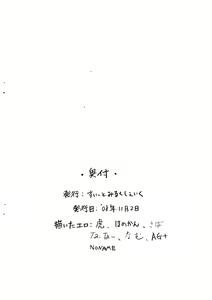 ・奥付・
発行：すいーとみるくしぇいく
発行日：'08年11月2日
描いたエロ：虎、ほのかん、さば
なむ、AG+
NONAME